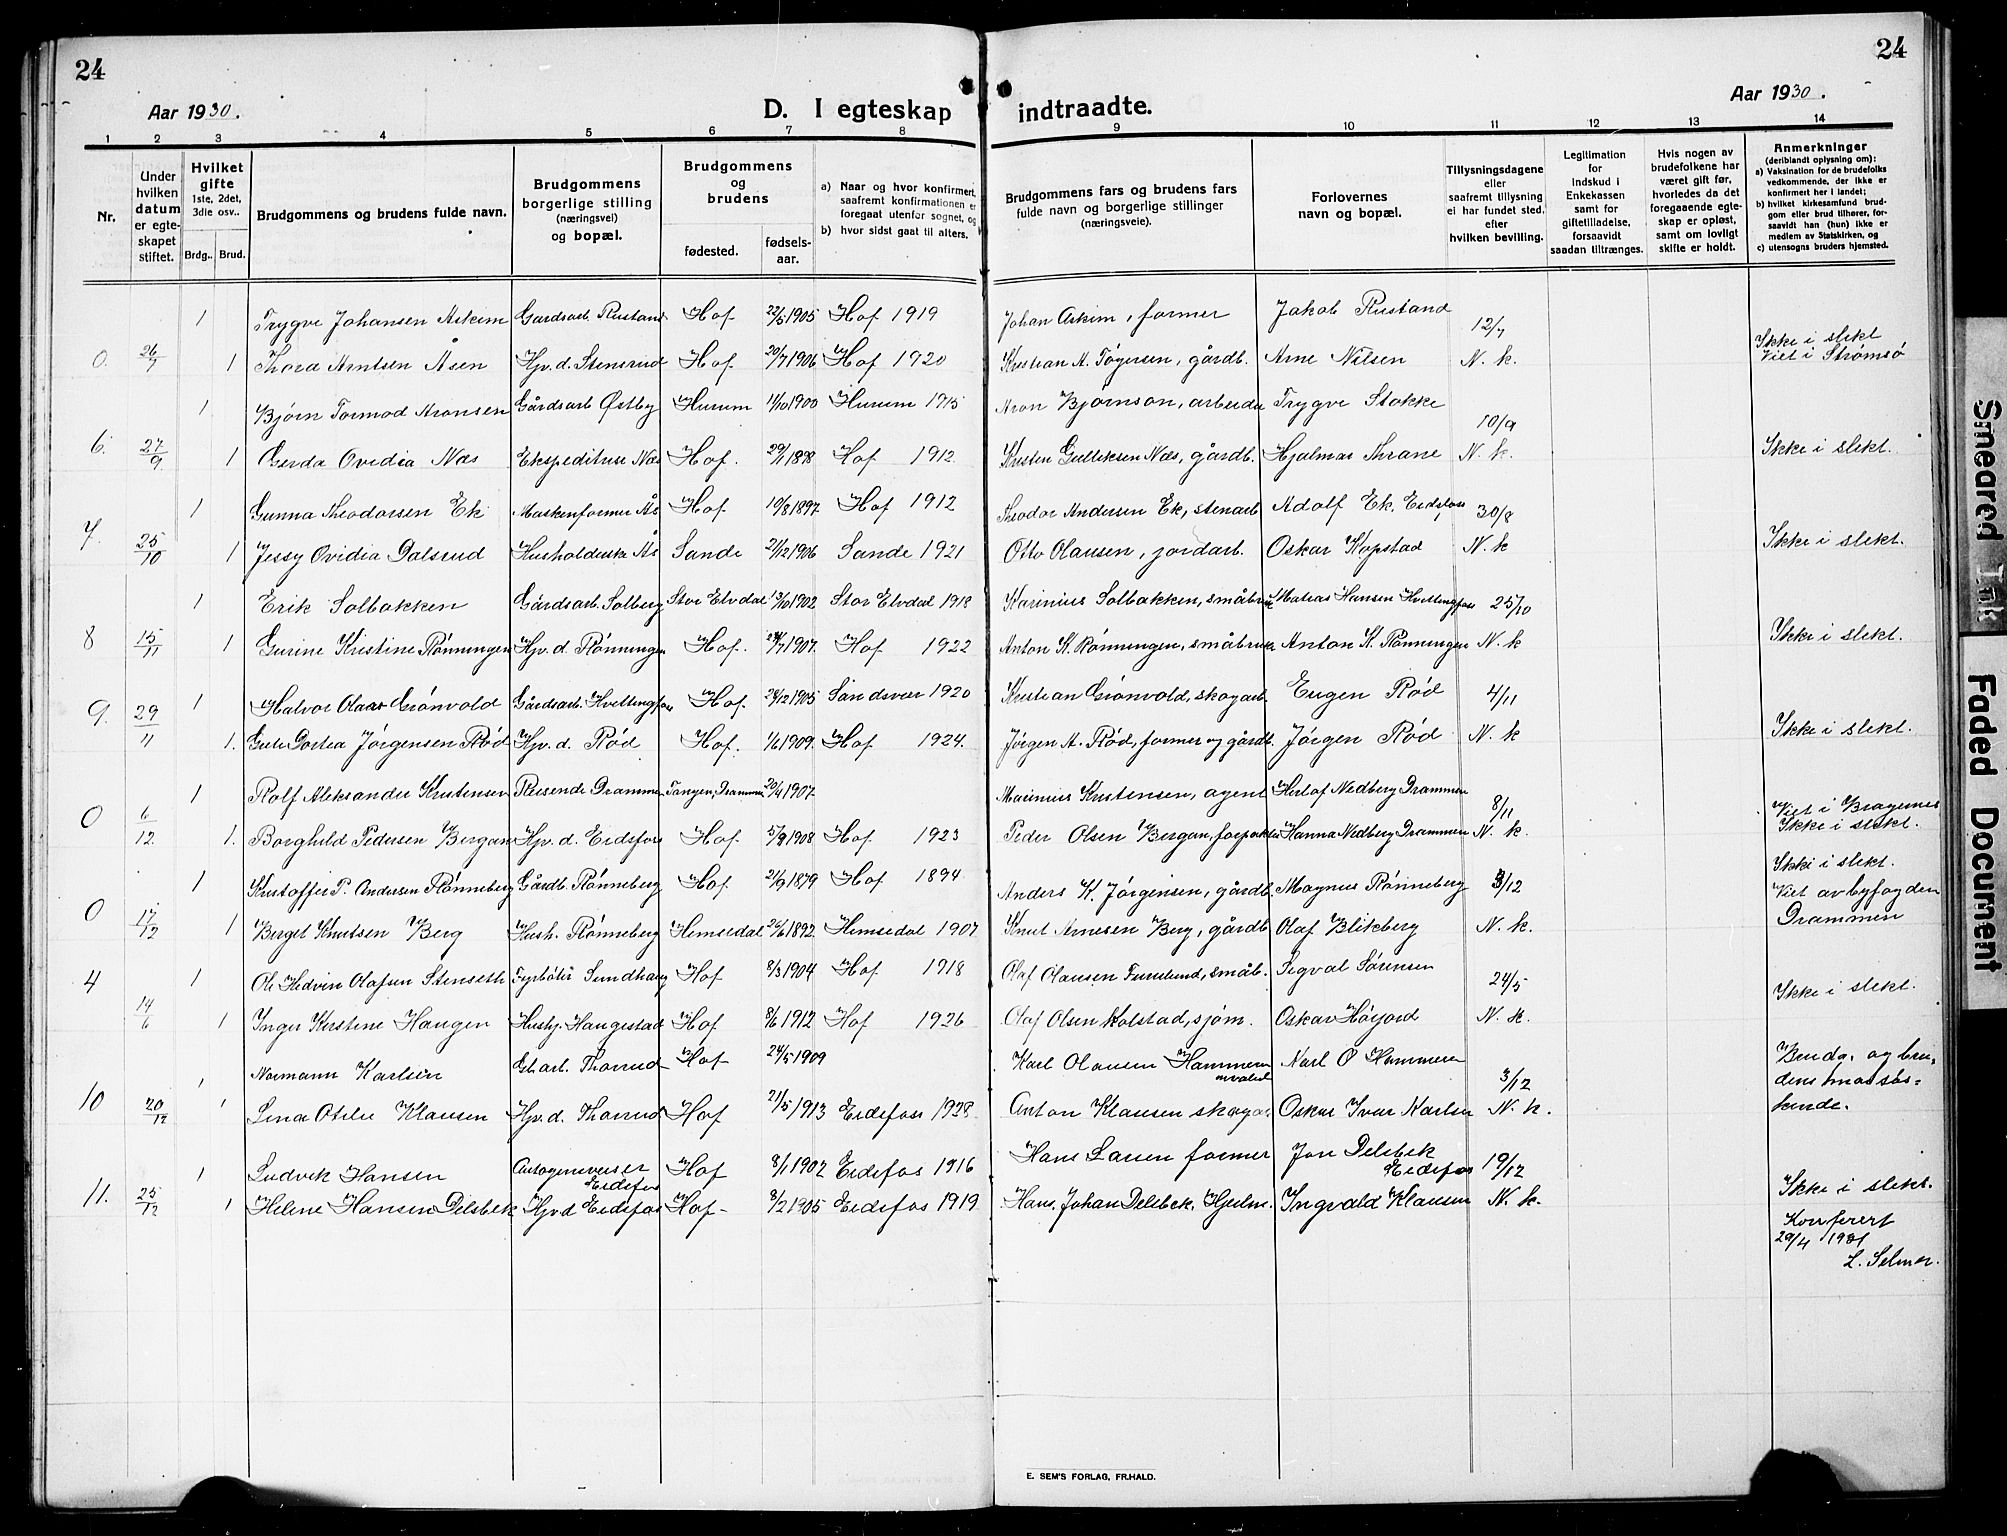 24
24
Aar 1930.
D. I egteskap indtraadte.
Aar 1930.
1 2 3 4 5 6 7 8 9 10 11 12 13 14
Nr.
Under hvilken datum er egte-skapet stiftet.
Hvilket gifte 1ste, 2det, 3die osv..
Brdg.. Brud.
Brudgommens og brudens fulde navn.
Brudgommens borgerlige stilling (næringsvei) og bopæl.
Brudgommens og brudens
fødested. fødsels-aar.
a) Naar og hvor konfirmert, saafremt konfirmationen er foregaat utenfor sognet, og
b) hvor sidst gaat til alters.
Brudgommens fars og brudens fars fulde navn og borgerlige stillinger (næringsveie).
Forlovernes navn og bopæl.
Tillysningsdagene eller saafremt tillysning ei har fundet sted, efter hvilken bevilling.
Legitimation for Indskud i Enkekassen samt for giftetilladelse, forsaavidt saadan tiltrænges.
Hvis nogen av brudefolkene har været gift før, hvorledes da det foregaaende egte-skap er opløst, samt om lovligt skifte er holdt.
Anmerkninger (deriblandt oplysning om): a) Vaksination for de brudefolks vedkommende, der ikke er konfirmert her i landet; b) hvilket kirkesamfund brud-gom eller brud tilhører, for-saavidt han (hun) ikke er medlem av Statskirken, og c) utensogns bruders hjemsted.
1 Trygve Johansen Askim Gardsarb. Rustand Hof 22/5 1905 Hof 1919 Johan Askim, former Jakob Rustand 12/7
0. 26/7 1 Thora Arntsen Åsen Hjv. d. Stensrud Hof. 20/7 1906 Hof 1920 Kristian A. Tøgersen, gårdb. Arne Nilsen N. k. Ikke i slekt Viet i Strømsø
1 Bjørn Tormod Aronsen Gårdsarb Østby Hurum 11/10 1900 Hurum 1915 Aron Bjørnson, arbeider Trygve Stokke 10/9
6. 27/9 1 Gerda Ovidia Næs Ekspeditrise Næs Hof. 29/11 1898 Hof 1912 Kristen Gulliksen Næs, gårdb. Hjalmar Thrane N. k. Ikke i slekt.
1 Gunna Theodorsen Ek Maskinformer Ås Hof. 10/8 1897 Hof 1912 Theodor Andersen Ek, stenarb Adolf Ek, Eidsfoss 30/8
7. 25/10 1 Jessy Ovidia Dalsrud Husholderske Ås Sande 21/12 1906 Sande 1921 Otto Olausen, jordarb. Oskar Kopstad N. k Ikke i slekt.
1 Erik Solbakken Gårdsarb. Solberg Stor Elvdal 13/10 1902 Stor Elvdal 1918 Karinius Solbakken, småbruk Matias Hansen Hvittingfoss 25/10
8 15/11 1 Gurine Kristine Rønningen Hjv. d. Rønningen Hof. 1907. Hof 1922 Anton K. Rønningen, småbruk Anton K. Rønningen N. k Ikke i slekt.
1 Halvor Olaus Grønvold Gårdsarb. Hvittingfoss Hof. 28/12 1905 Sandsvær 1920 Kristian Grønvold, skogarb. Eugen Rød 4/11
9. 29/11 1. Dortea Jørgensen Rød Hjv. d. Rød Hof. 1/6 1909. Hof 1924. Jørgen A. Rød, former og gårdb. Jørgen Rød N. k Ikke i slekt.
1 Rolf Aleksander Kristensen Reisende Drammen Tangen, Drammen 20/4 1907 Marinius Kristensen, agent Herlof Nedberg Drammen 8/11
0 6/12. 1. Borghild Pedersen Bergan Hjv. d. Eidsfos Hof. 5/9 1908 Hof 1923 Peder Olsen Bergan, forpakter Hanna Nedberg Drammen N. k. Viet i Bragernes Ikke i slekt.
1 Kristoffer P. Andersen Rønneberg Gårdb. Rønneberg Hof 21/9 1879 Hof 1894 Anders K. Jørgensen, gårdb. Magnus Rønneberg 3/12 Ikke i slekt.
0 17/12 1 Berget Knutsen Berg Hush. Rønneberg Hemsedal 26/6 1892. Hemsedal 1907. Knut Arnesen Berg, gårdb Olaf Blikberg N. k. Viet av byfogden Drammen
4 1 Ole Hedvin Olafsen Stenseth Fyrbøter Sundhaug Hof 8/3 1904 Hof 1918 Olaf Olausen Furuland, småb. Segval Sørensen 24/5
14/6 1 Inger Kirstine Haugen Hushj. Haugestad Hof 8/6 1912 Hof 1926 Olaf Olsen Kolstad, sjøm. Oskar Høijord N. k. Ikke i slekt.
1 Normann Karlsen Gb arb. Thorrud Hof 24/5 1909 Karl Olausen Hammeren invalid Karl O Hammeren 3/12
10 20/12 1 Lina Otelie Klausen Hjv. d. Thorrud Hof 21/5 1913 Eidsfos 1928 Anton Klausen skogar. Oskar Ivar Karlsen N. k. Brudg. og bru-dens mor søs-kende.
1 Ludvik Hansen Autogensveiser Eidsfos Hof 8/1 1902 Eidsfos 1916 Hans Larsen former Jon Delebek Eidsfos 19/12
11. 25/12 1 Helene Hansen Delebek Hjv d Eidsfos Hof 3/2 1905 Eidsfos 1919 Hans Johan Delebek, Hjulm. Ingvald Klausen N. k. Ikke i slekt.
Konferert
29/4 1931
L. Selmer.
E. SEM'S FORLAG, FR.HALD.
Smeared Ink
Faded Document